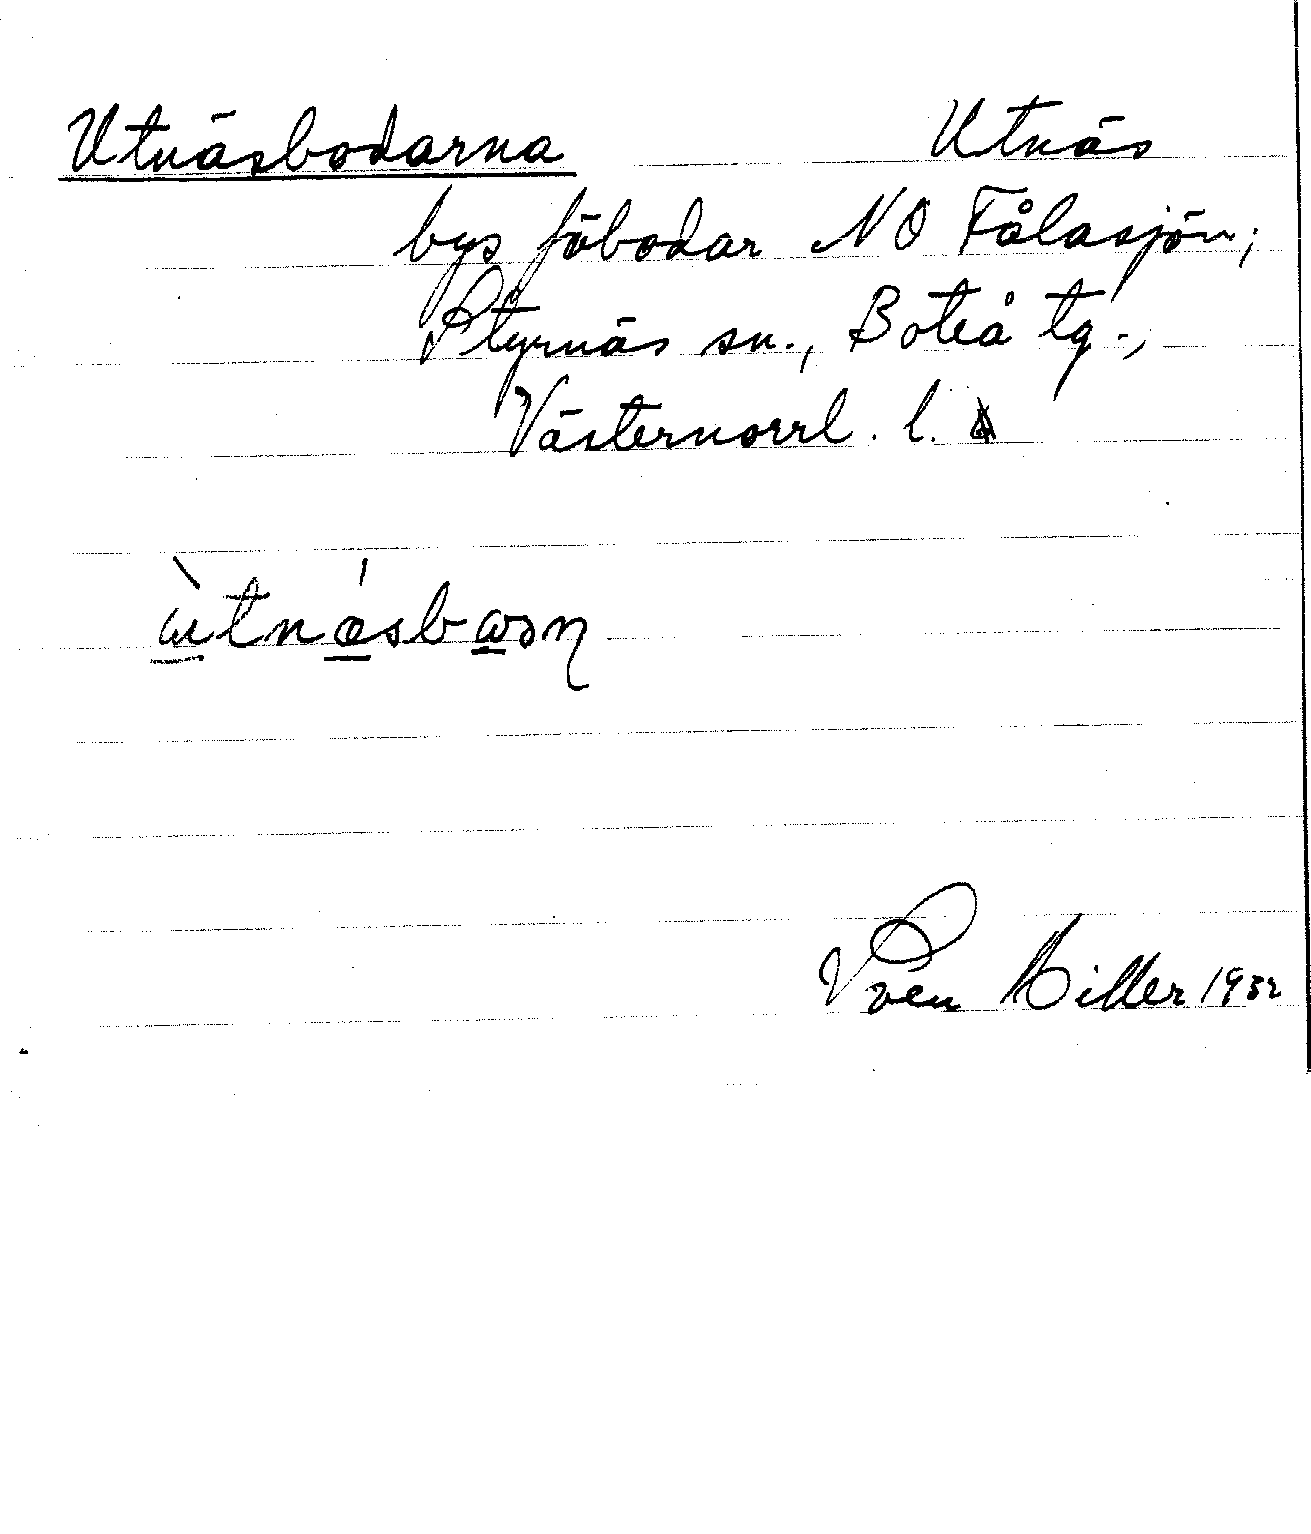 Utnäsbodarna Utnäs
bys fäbodar NO Fålasjön;
Styrnäs sn., Boteå tg.,
Västernorrl. l.
Sven Miller 1932